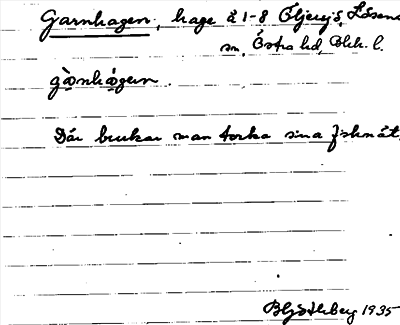 Garnhagen, hage å 1-8 Öljersjö, Lösens
sn, Östra hd, Blek. l.
gàṇhá̱gen.
Där brukar man torka sina fisknät.
1935